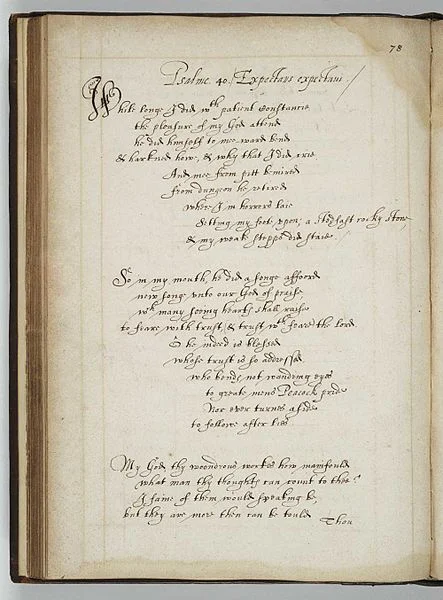 78
Psalme. 40. Expectans expectaui
While longe I did wth patient Constancie
the pleasure of my God attend
he did himself to mee ward bend
& harkned how, & why that I did crie
And mee from pitt bemired
from dungeon he retired
where I in horrors laie
Setting my foot vpon; a stedfast rocky stone,
& my weak stepps did staie
So in my mouth, he did a songe affoord
new song vnto our God of praise,
wch many seeing hearts shall raise
to feare with trust, & trust wth feare the lord
O he indeed is blessed
whose trust is so addressed
who bends not wandring eyes
to greate mens Peacock pride
Nor ever turnes aside
to follow after lies
My God, thy woondrous workes how manifould
what man thy thoughts can count to thee?
I faine of them would speaking be
but they are more then can be tould
Thou